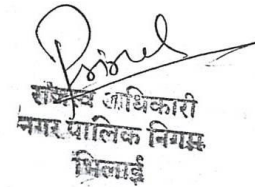 राजस्व अधिकारी
नगर पालिक निगम
भिलाई